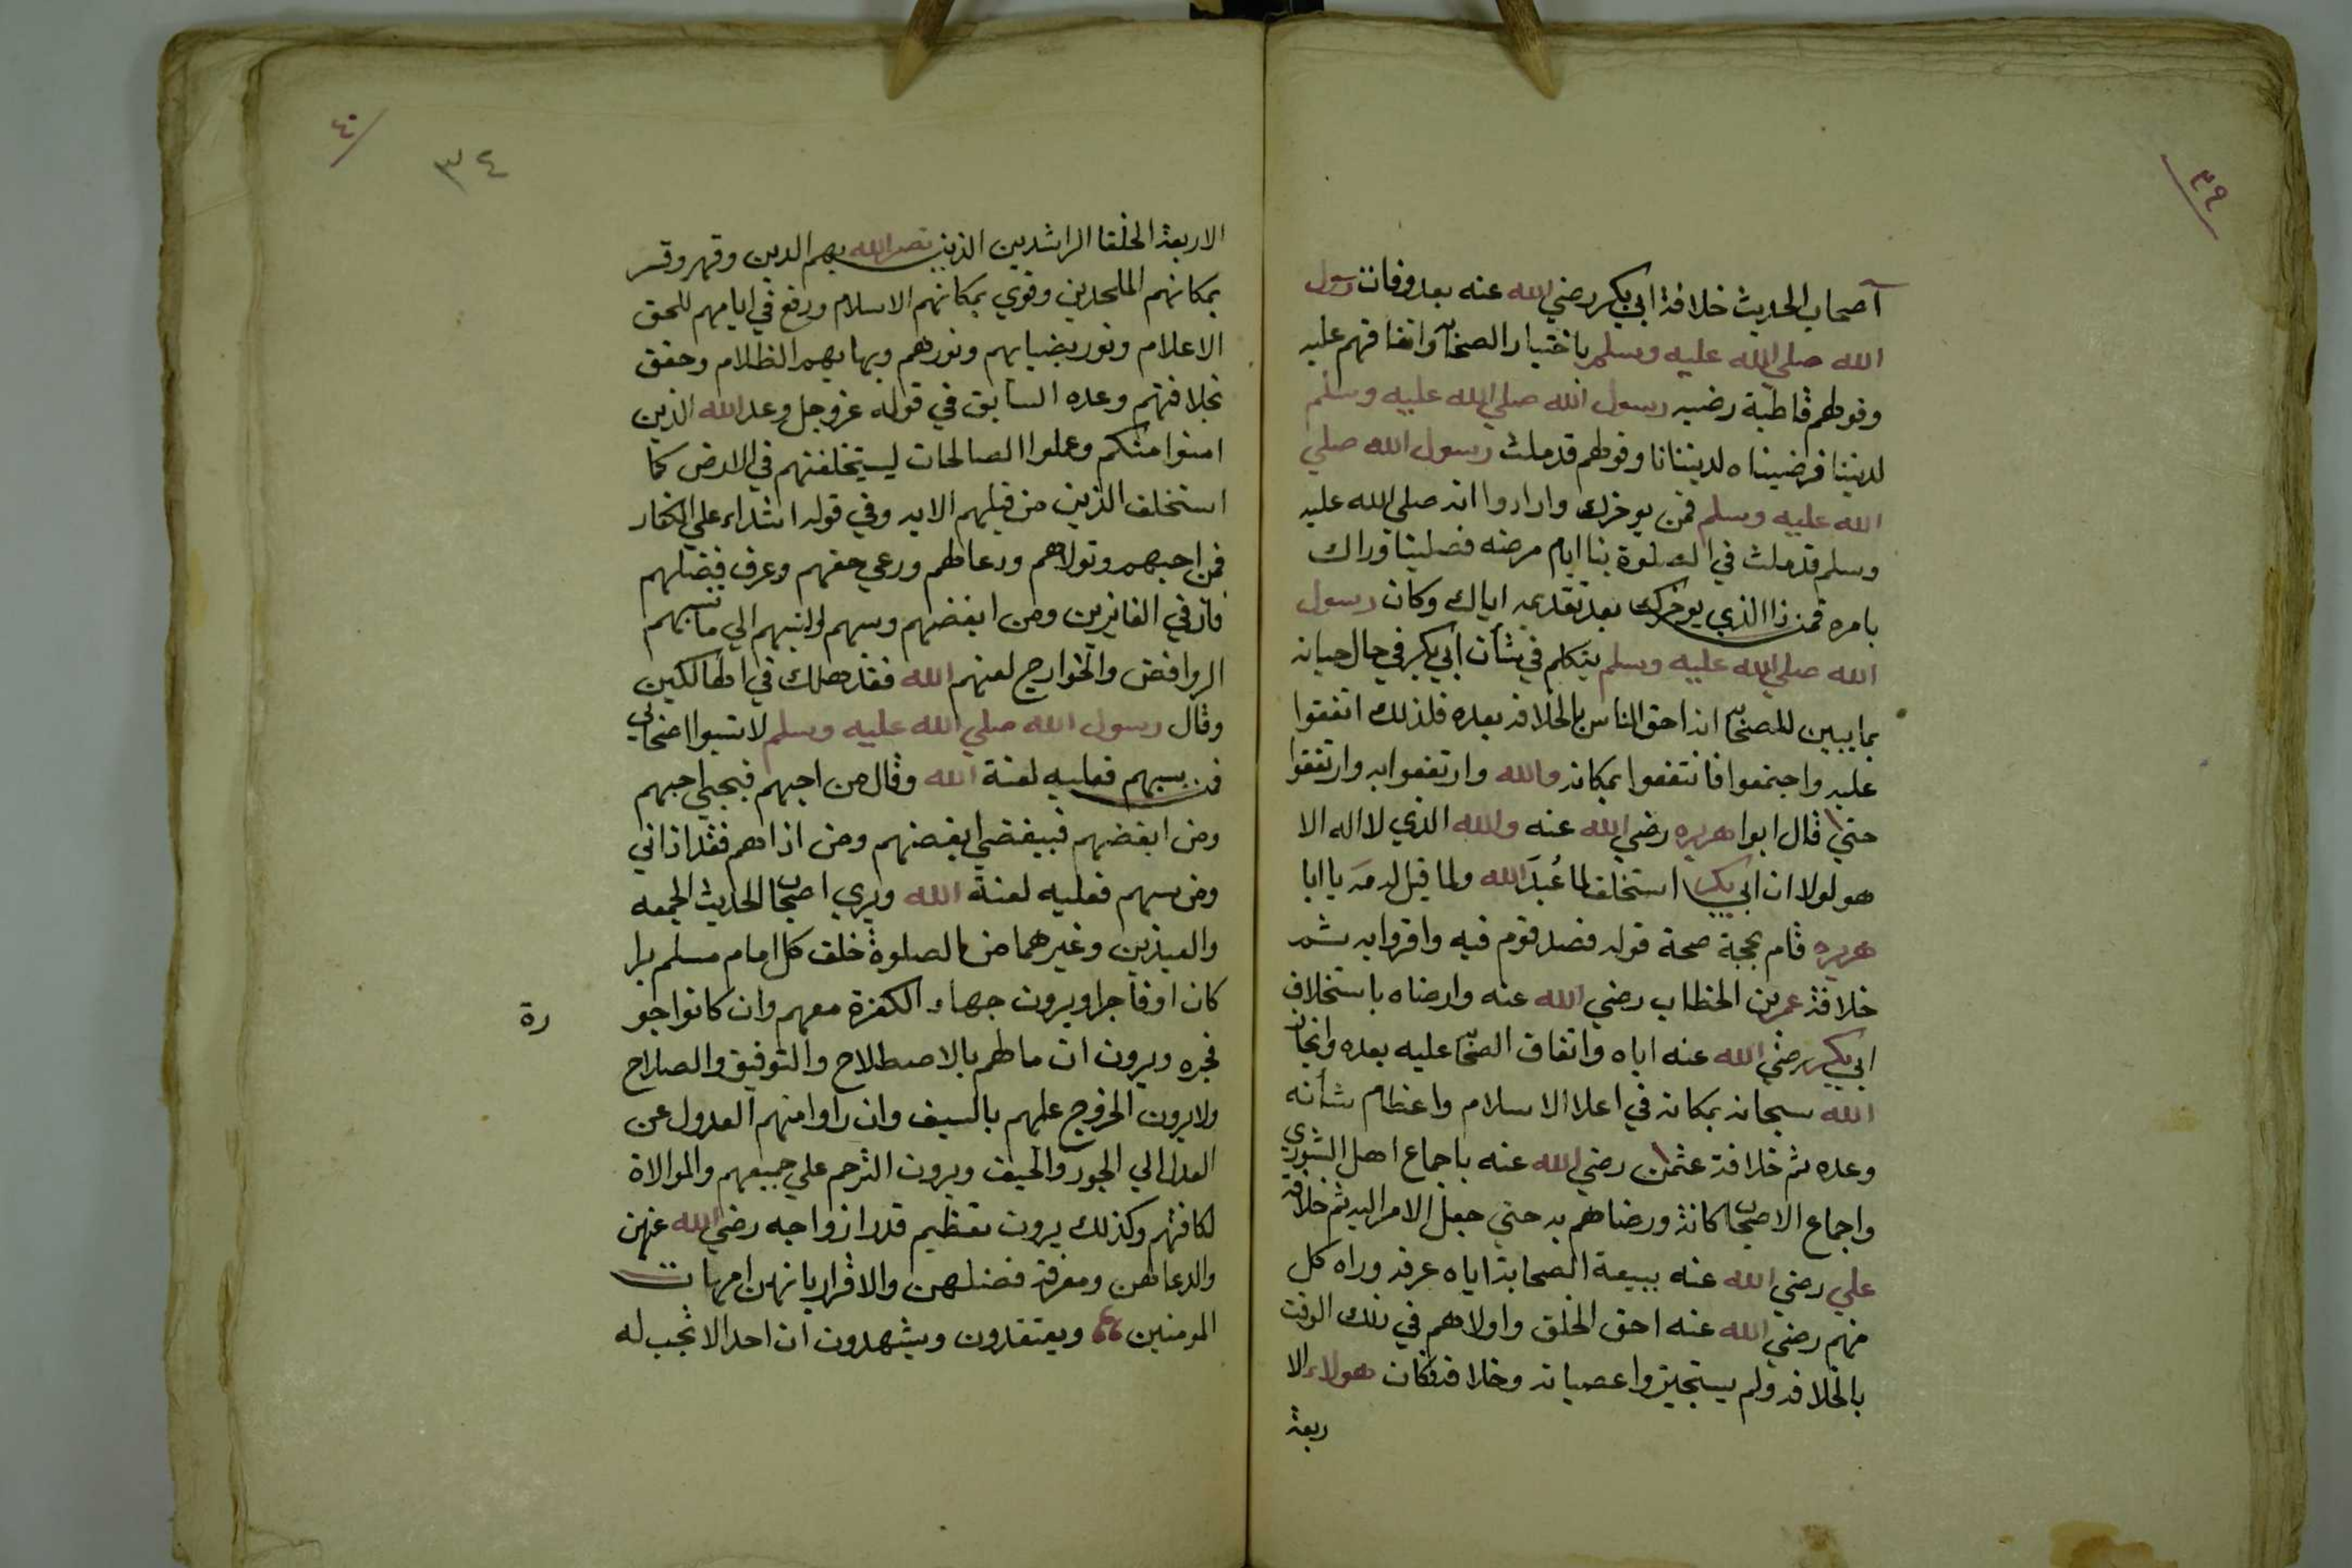 ٣٩
آصحاب الحديث خلافة ابي بكر رضي الله عنه بعد وفات رسول
الله صلي الله عليه وسلم باختيار الصحابة واتفاقهم عليه
وقولهم قاطبة رضيه رسول الله صلي الله عليه وسلم
لديننا فرضيناه لدينانا وقولهم قدملث رسول الله صلي
الله عليه وسلم فمن يوخرك وارادوا انه صلي الله عليه
وسلم قدملث في الصلوة بنا ايام مرضه فصلينا وراك
بامره فمن ذا الذي يوخرك بعد تقديمه اياك وكان رسول
الله صلي الله عليه وسلم يتكلم في شأن ابي بكر في حال حياته
بما يبين للصحابة انه احق الناس بالخلافه بعده فلذلك اتفقوا
عليه واجتمعوا فانتفعوا بمكانه والله وارتفعوا به وارتفقوا
حتي قال ابوا هريره رضي الله عنه والله الذي لا اله الا
هو لولا ان ابي بكر استخلف لما عُبدَ الله ولما قيل له مَه يا ابا
هريره قام بحجة صحة قوله فصدقوم فيه واقروا به ثم
خلافة عمر بن الخطاب رضي الله عنه وارضاه باستخلاف
ابي بكر رضي الله عنه اياه واتفاق الصحابة عليه بعده وانجاز
الله سبحانه بمكانه في اعلا الاسلام واعظام شأنه
وعده ثم خلافة عثمن رضي الله عنه باجماع اهل الشوري
واجماع الاصحاب كافة ورضاهم به حتي جعل الامر اليه ثم خلافة
علي رضي الله عنه ببيعة الصحابة اياه عرفه وراه كل
منهم رضي الله عنه احق الخلق واولاهم في ذلك الوقت
بالخلافه ولم يستجيزوا عصيانه وخلافه فكان هولاء الا
ربعة
٤٠
٣٤
الاربعة الخلفا الراشدين الذين نصر الله بهم الدين وقهر وقسر
بمكانهم الملحدين وقوي بمكانهم الاسلام ورفع في ايامهم للحق
الاعلام ونور بضيايهم ونورهم وبهايهم الظلام وحقق
بخلافتهم وعده السابق في قوله عز وجل وعد الله الذين
امنوا منكم وعملوا الصالحات ليستخلفنهم في الارض كما
استخلف الذين من قبلهم الايه وفي قوله اشداء علي الكفار
فمن احبهم وتولاهم ودعا لهم ورعي حقهم وعرف فضلهم
فاز في الفايزين ومن ابغضهم وسبهم اونسبهم الي ما نسبهم
الروافض والخوارج لعنهم الله فقد هلك في الهالكين
وقال رسول الله صلي الله عليه وسلم لا تسبوا اصحابي
فمن سبهم فعليه لعنة الله وقال من احبهم فبحبي احبهم
ومن ابغضهم فببغضي ابغضهم ومن اذاهم فقد اذاني
ومن سبهم فعليه لعنة الله ويري اصحاب الحديث الجمعه
والعيدين وغيرهما من الصلوة خلف كل امام مسلم برا
كان اوفاجرا ويرون جهاد الكفرة معهم وان كانوا جو
رة
فجره ويرون ان ما لهم بالاصطلاح والتوفيق والصلاح
ولا يرون الخروج عليهم بالسيف وان راوا منهم العدول عن
العدل الي الجور والحيف ويرون الترحم علي جميعهم والموالاة
لكافتهم وكذلك يرون تعظيم قدر ازواجه رضي الله عنهن
والدعا لهن ومعرفة فضلهن والاقرار بانهن امهات
المومنين ويعتقدون ويشهدون ان احدا لا تجب له